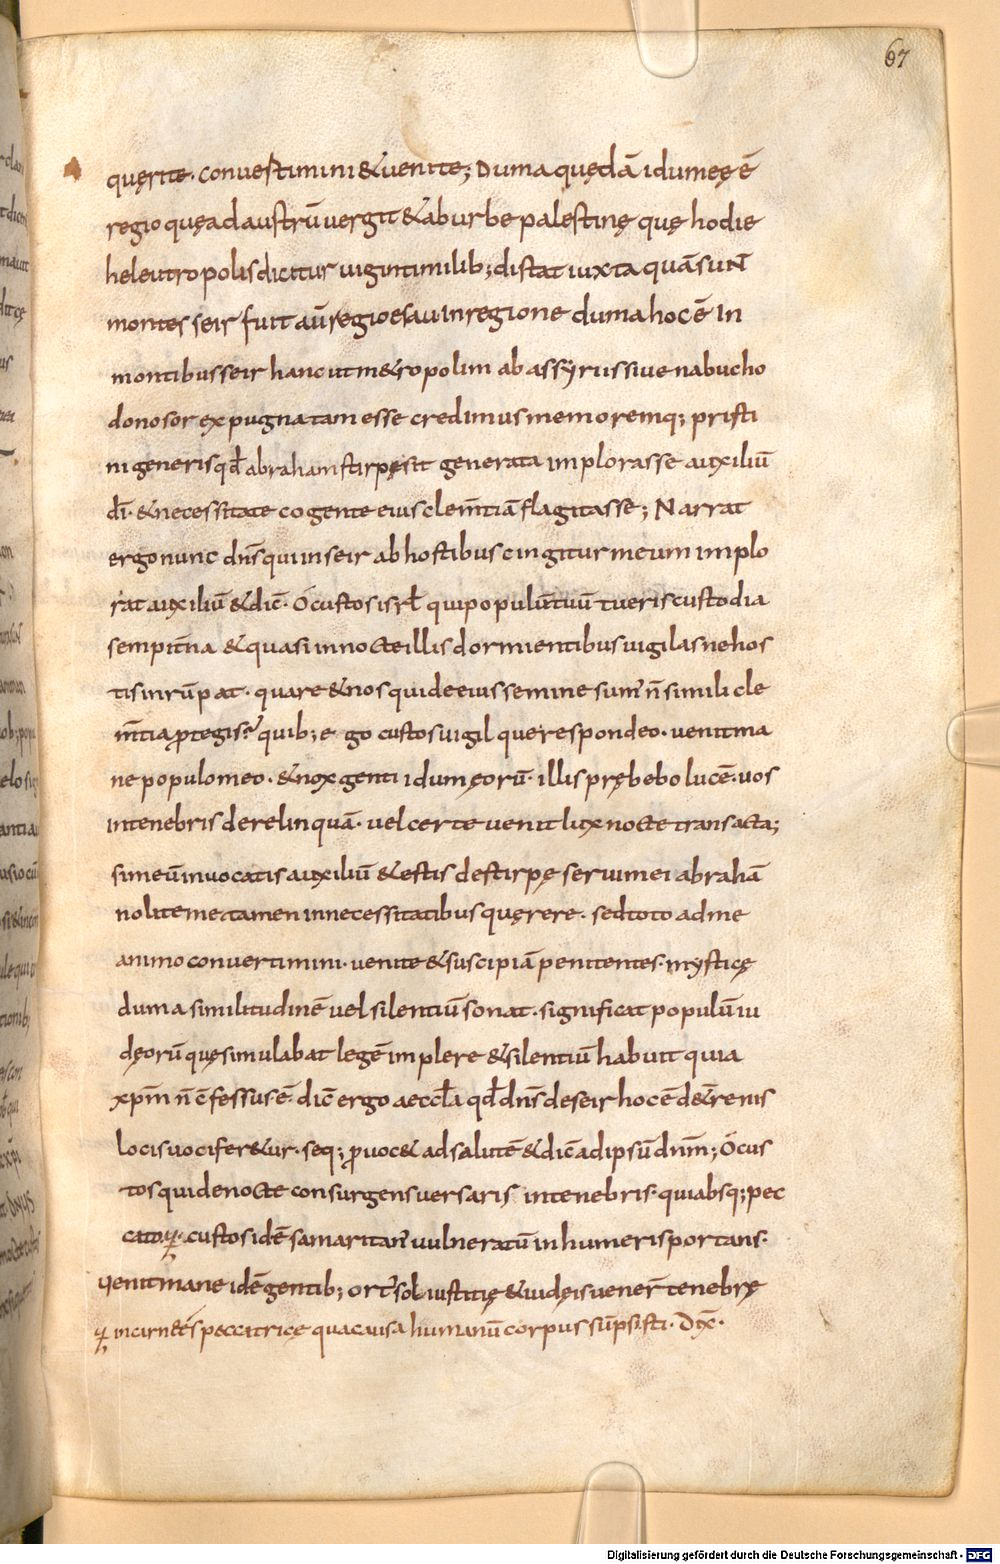 67
quęrite. convestimini & venite; Duma quędā idumeę ē
regio quę ad austrū vergit & ab urbe palestinę quę hodie
heleutropolis dicitur viginti milib; distat iuxta quā sunt
montes seir fuit aū regio esau in regione duma hoc ē in
montibus seir hanc ut m&ropolim ab assyriis sive nabucho
donosor expugnatam esse credimus memoremq; pristi
ni generis qđ abraham stirpe sit generata implorasse auxiliū
dī. & necessitate cogente eius clem̄tiā flagitasse; Narrat
ergo nunc dn̄s qui in seir ab hostibus cingitur meum implo
rat auxiliū & dic̄. O custos isrł qui populū tuū tueris custodia
sempit̄na & quasi in nocte illis dormientibus vigilas ne hos
tis inrūpat. quare & nos qui de eius semine sum' n̄ simili cle
m̄tia ꝓtegis? quib; ego custos vigilque respondeo. venit ma
ne populo meo. & nox genti idumęorū. illis prębebo lucē. vos
in tenebris derelinquā. vel certe venit lux nocte transacta;
si me ū invocatis auxiliū & estis de stirpe servi mei abrahā
nolite me tamen in necessitatibus quęrere. sed toto ad me
animo convertimini. venite & suscipiā penitentes. mysticę
duma similitudinē vel silentiū sonat. significat populū iu
dęorū quę simulabat legē implere & silentiū habuit quia
xp̄m n̄ c̄fessus ē. dic̄ ergo aeccła qđ dn̄s de seir hoc ē d& ̄renis
locis vocifer&ur. seq; ꝓvoc& ad salutē & dic̄ ad ipsū dn̄m; O cus
tos qui de nocte consurgens versaris in tenebris. qui absq; pec
cato. custos idē samaritan' vulneratū in humeris portans.
venit mane idē gentib; ort' sol iustitię & iudęis vener̄ tenebrę
in carn& peccatricę qua causa humanū corpus sūpsisti. Dix̄.
Digitalisierung gefördert durch die Deutsche Forschungsgemeinschaft - DFG